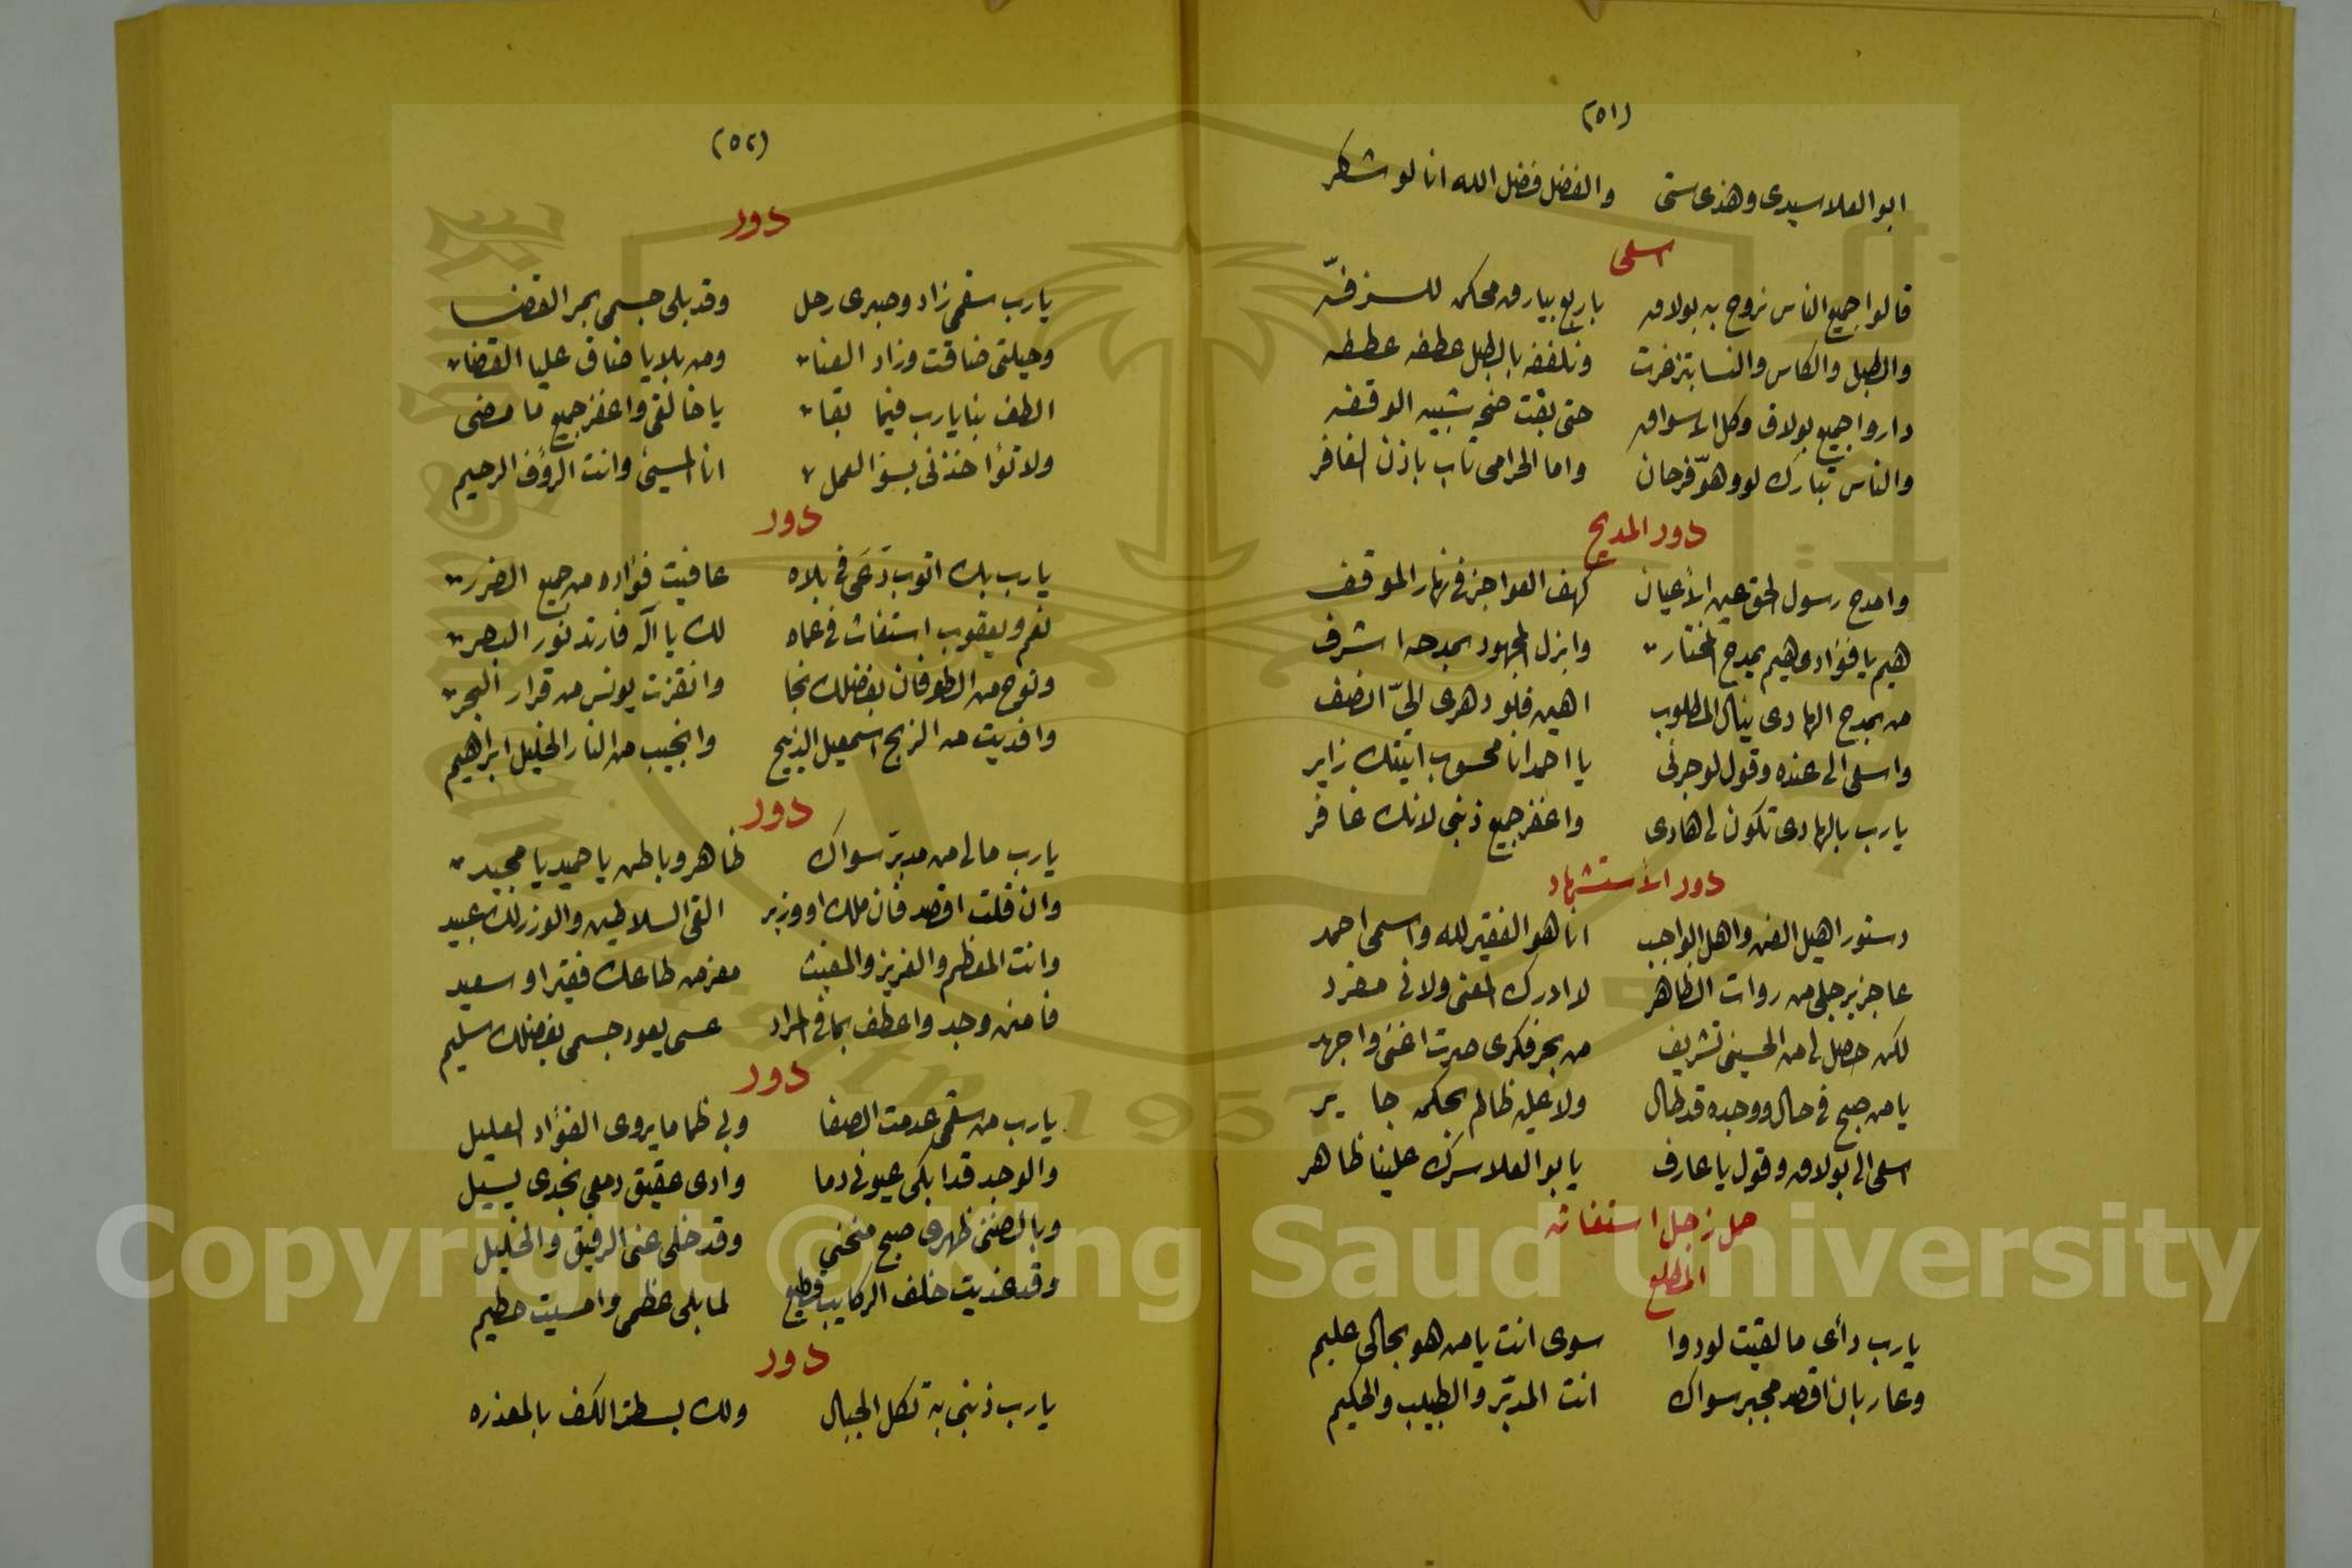 (٥١)
ابو العلا سيدى وهذى ستى والفضل فضل الله انا لو شاكر
اسعى
قالوا جميع الناس نروح به بولاق باربع بيارق محكمه للزفّه
والطبل والكاس والنسا بتزغرت ونلففه بالطبل عطفه عطفه
داروا جميع بولاق وكل الاسواق حتى بقت ضجه بشبيه الوقفه
والناس تبارك لو وهوّ فرحان واما الحرامى تاب باذن الغافر
دور المديح
وامدح رسول الحق عين الأعيان كهف العواجز فى نهار الموقف
هيم يا فؤادى هيم بمدح المختار وابذل المجهود بمدحه اشرف
من بمدح الهادى ينال المطلوب اهين فلو دهرى اليّ انصف
واسعى الى عنده وقول لو جرنى يا احمد انا محسوب اتيتك زاير
يارب بالهادى تكون لى هادى واغفر جميع ذنبى لانك غافر
دور الأستشهاد
دستور اهيل الفن واهل الواجب انا هو الفقير لله واسمى احمد
عاجز برجلى من روات الظاهر لا ادرك المعنى ولا فى مفرد
لكن حصل لى من الحسينى تشريف من بحر فكرى صرت اغنى واجهد
يا من صبح فى حال ووجده قد طال ولا عليه ظالم بحكمه جاير
اسعى الى بولاق وقول يا عارف يا بو العلا سرك علينا ظاهر
حمل زجل استغاثه
المطلع
يارب دأى ما لقيت لو دوا سوى انت يا من هو بحالى عليم
وعار بان اقصد مجبر سواك انت المدبّر والطبيب والحكيم
(٥٢)
دور
يارب سقمى زاد وصبرى رحل وقد بلى جسمى بجر القضا
وحيلتى ضاقت وزاد العنا ومن بلايا ضاق عليا القضا
الطف بنا يارب فيما بقا يا خالقى واغفر جميع ما مضى
ولا تؤاخذنى بسؤ العمل انا المسيئ وانت الرؤف الرحيم
دور
يارب بك ايوب دعى فى بلاه عافيت فؤاده من جميع الضرر
نعم ويعقوب استغاث فى عماه لك يا آله فارتد نور البصر
ونوح من الطوفان بفضلك نجا وانقزت يونس من قرار البحر
وافديت من الذبح اسمعيل الذبيح وانجيب من النار الخليل ابراهيم
دور
يارب مالى من مدبّر سواك ظاهر وباطن يا حميد يا مجيد
وان قلت اقصد فان ملك او وزير القى السلاطين والوزر لك عبيد
وانت المعظم والعزيز والمغيث معز من طاعك فقير او سعيد
فامنن وجد واعطف بما فى المراد عسى يعود جسمى بفضلك سليم
دور
يارب من سقمى عدمت الصفا وبى ظما ما يروى الفؤاد العليل
والوجد قد ابكى عيونى دما وادى عقيق دمعى بخدى يسيل
وبالضنى ظهرى صبح منحنى وقد خلى عنى الرفيق والخليل
وقد غديت خلف الركايب قطيع لما بلى عظمى وامسيت حطيم
دور
يارب ذنبى به تكل الجبال ولك بسطت الكف بالمعذره
Copyright © King Saud University
1957